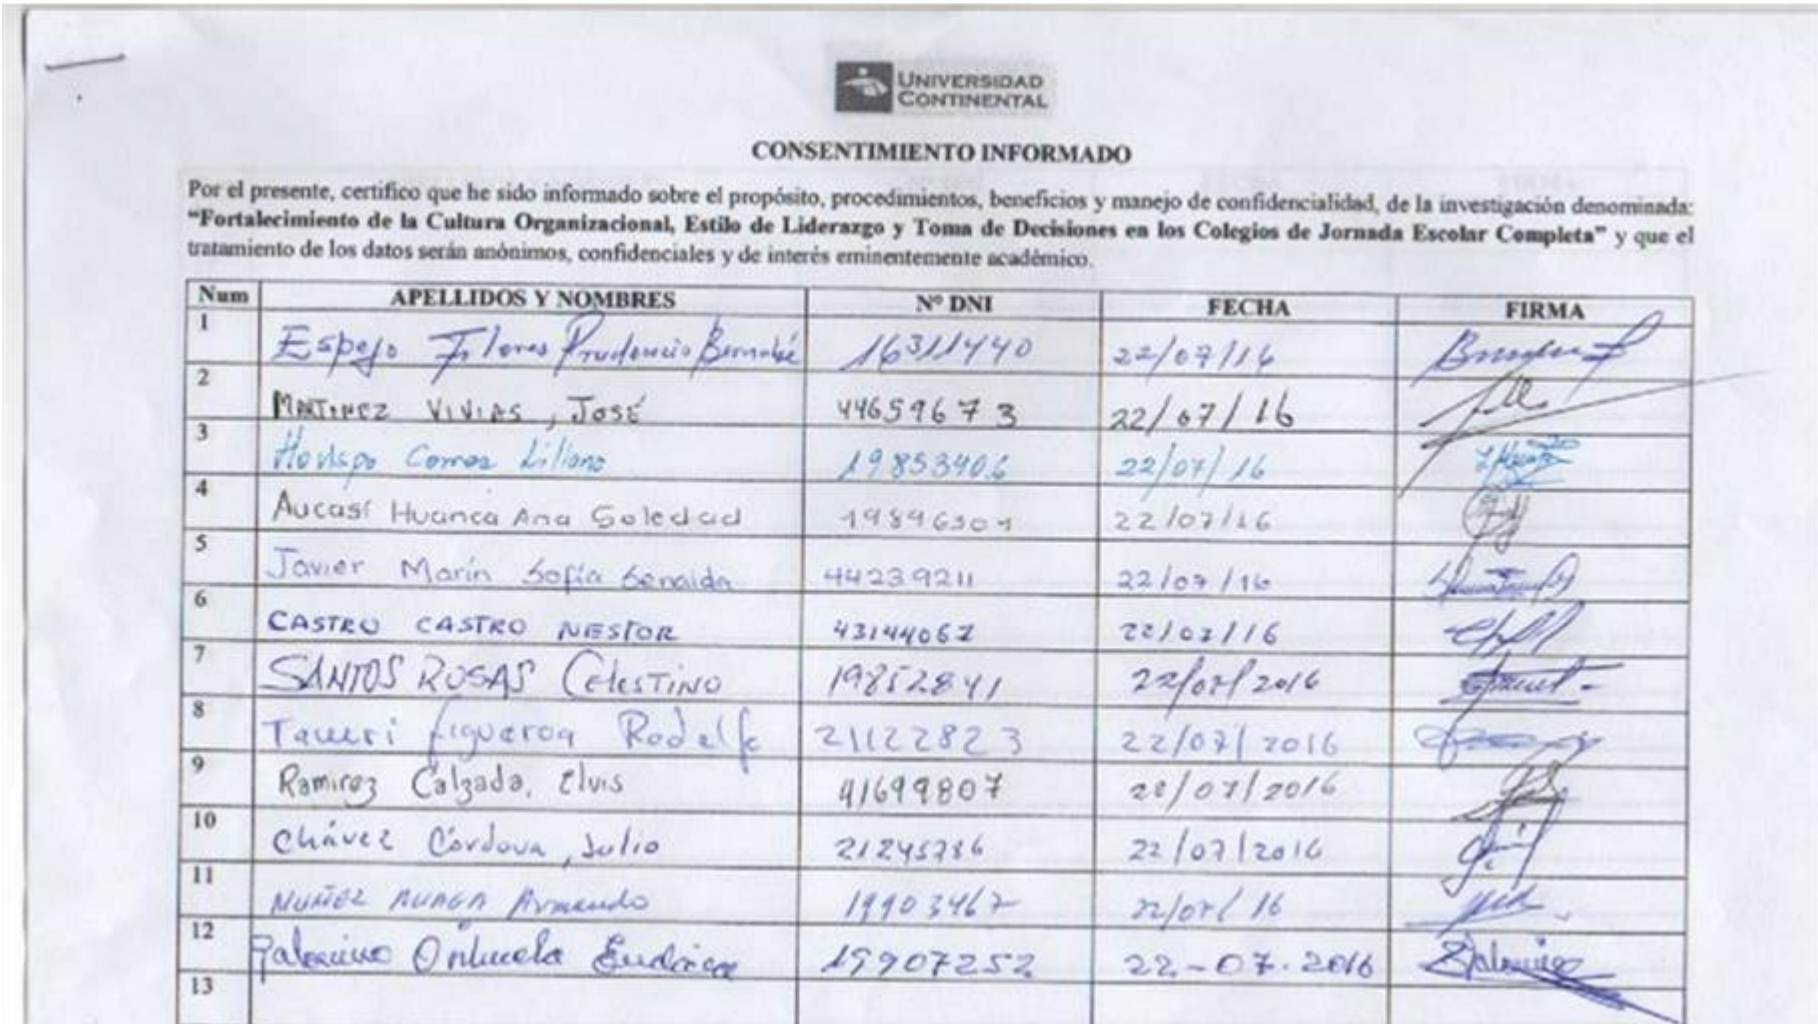 UNIVERSIDAD
CONTINENTAL
CONSENTIMIENTO INFORMADO
Por el presente, certifico que he sido informado sobre el propósito, procedimientos, beneficios y manejo de confidencialidad, de la investigación denominada:
"Fortalecimiento de la Cultura Organizacional, Estilo de Liderazgo y Toma de Decisiones en los Colegios de Jornada Escolar Completa" y que el
tratamiento de los datos serán anónimos, confidenciales y de interés eminentemente académico.
Num APELLIDOS Y NOMBRES Nº DNI FECHA FIRMA
1 Espejo Flores Prudencio Bernabé 16311440 22/07/16
2 MARTINEZ VIVIAS, JOSÉ 44659673 22/07/16
3 Liliana 19853406 22/07/16
4 Aucasí Huanca Ana Soledad 19896301 22/07/16
5 Javier Marín Sofía Senaida 44239211 22/07/16
6 CASTRO CASTRO NESTOR 43144067 22/07/16
7 SANTOS ROSAS CELESTINO 19852841 22/07/2016
8 Figueroa Rodolfo 21122823 22/07/2016
9 Ramirez Calzada, Elvis 41699807 22/07/2016
10 Chávez Córdova, Julio 21245786 22/07/2016
11 NUÑEZ Armando 19903467 22/07/16
12 Palomino Orihuela 19907252 22-07-2016
13